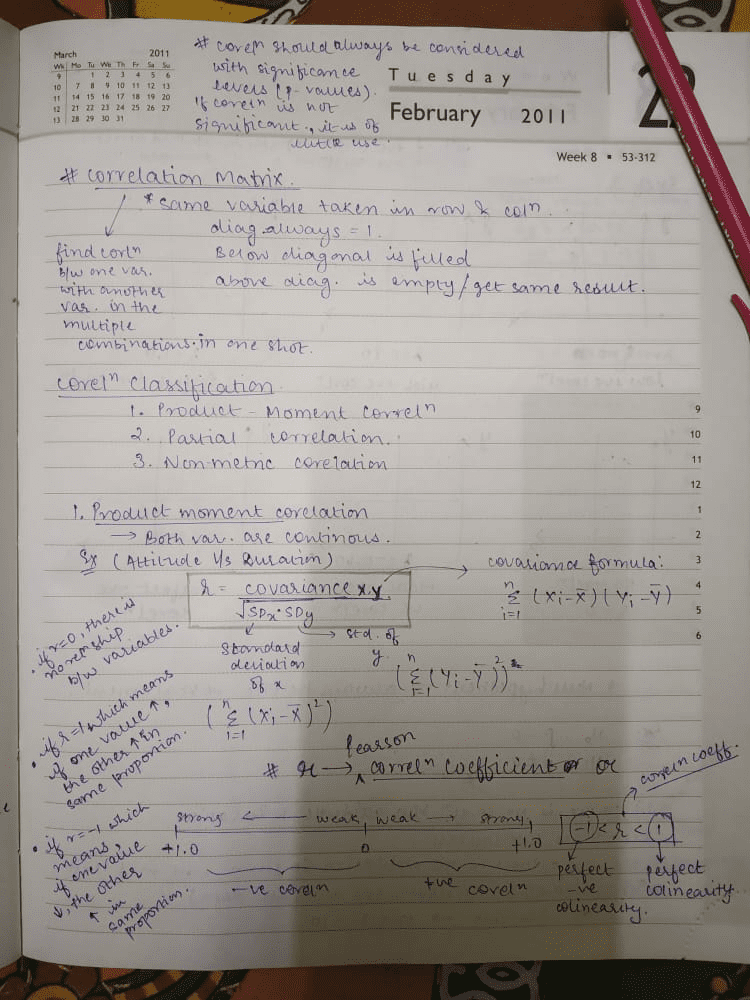 March 2011
Wk Mo Tu We Th Fr Sa Su
9 1 2 3 4 5 6
10 7 8 9 10 11 12 13
11 14 15 16 17 18 19 20
12 21 22 23 24 25 26 27
13 28 29 30 31
# coreln should always be considered
with significance
levels (p-values).
If coreln is not
significant, it is of
little use.
Tuesday
February 2011
22
Week 8 ▪ 53-312
# Correlation Matrix.
* Same variable taken in row & coln.
diag. always = 1.
Below diagonal is filled
above diag. is empty/get same result.
find corln
b/w one var.
with another
var. in the
multiple
combinations in one shot.
Coreln Classification.
1. Product - Moment Correln
2. Partial correlation.
3. Non-metric corelation
9
10
11
12
1
2
3
4
5
6
1. Product moment corelation
→ Both var. are continous.
Ex (Attitude V/s Duration)
r = covariance x.y / √SDx·SDy
covariance formula:
n Σ i=1 (xi-x̄)(Yi-Ȳ)
Standard
deviation
of x
(n Σ i=1 (xi-x̄)²)
std. of
y
(n Σ i=1 (Yi-Ȳ)²)
• if r=0, there is
no relnship
b/w variables.
• if r=1 which means
if one value ↑,
the other ↑ in
same proportion.
• if r=-1 which
means,
if one value
↓, the other
↑ in
same
proportion.
# r → Pearson correln coefficient or
strong ← weak, weak → strong
+1.0 0 +1.0
-ve coreln +ve coreln
correln coeff.
-1 < r < 1
perfect
-ve
colinearity.
perfect
colinearity.